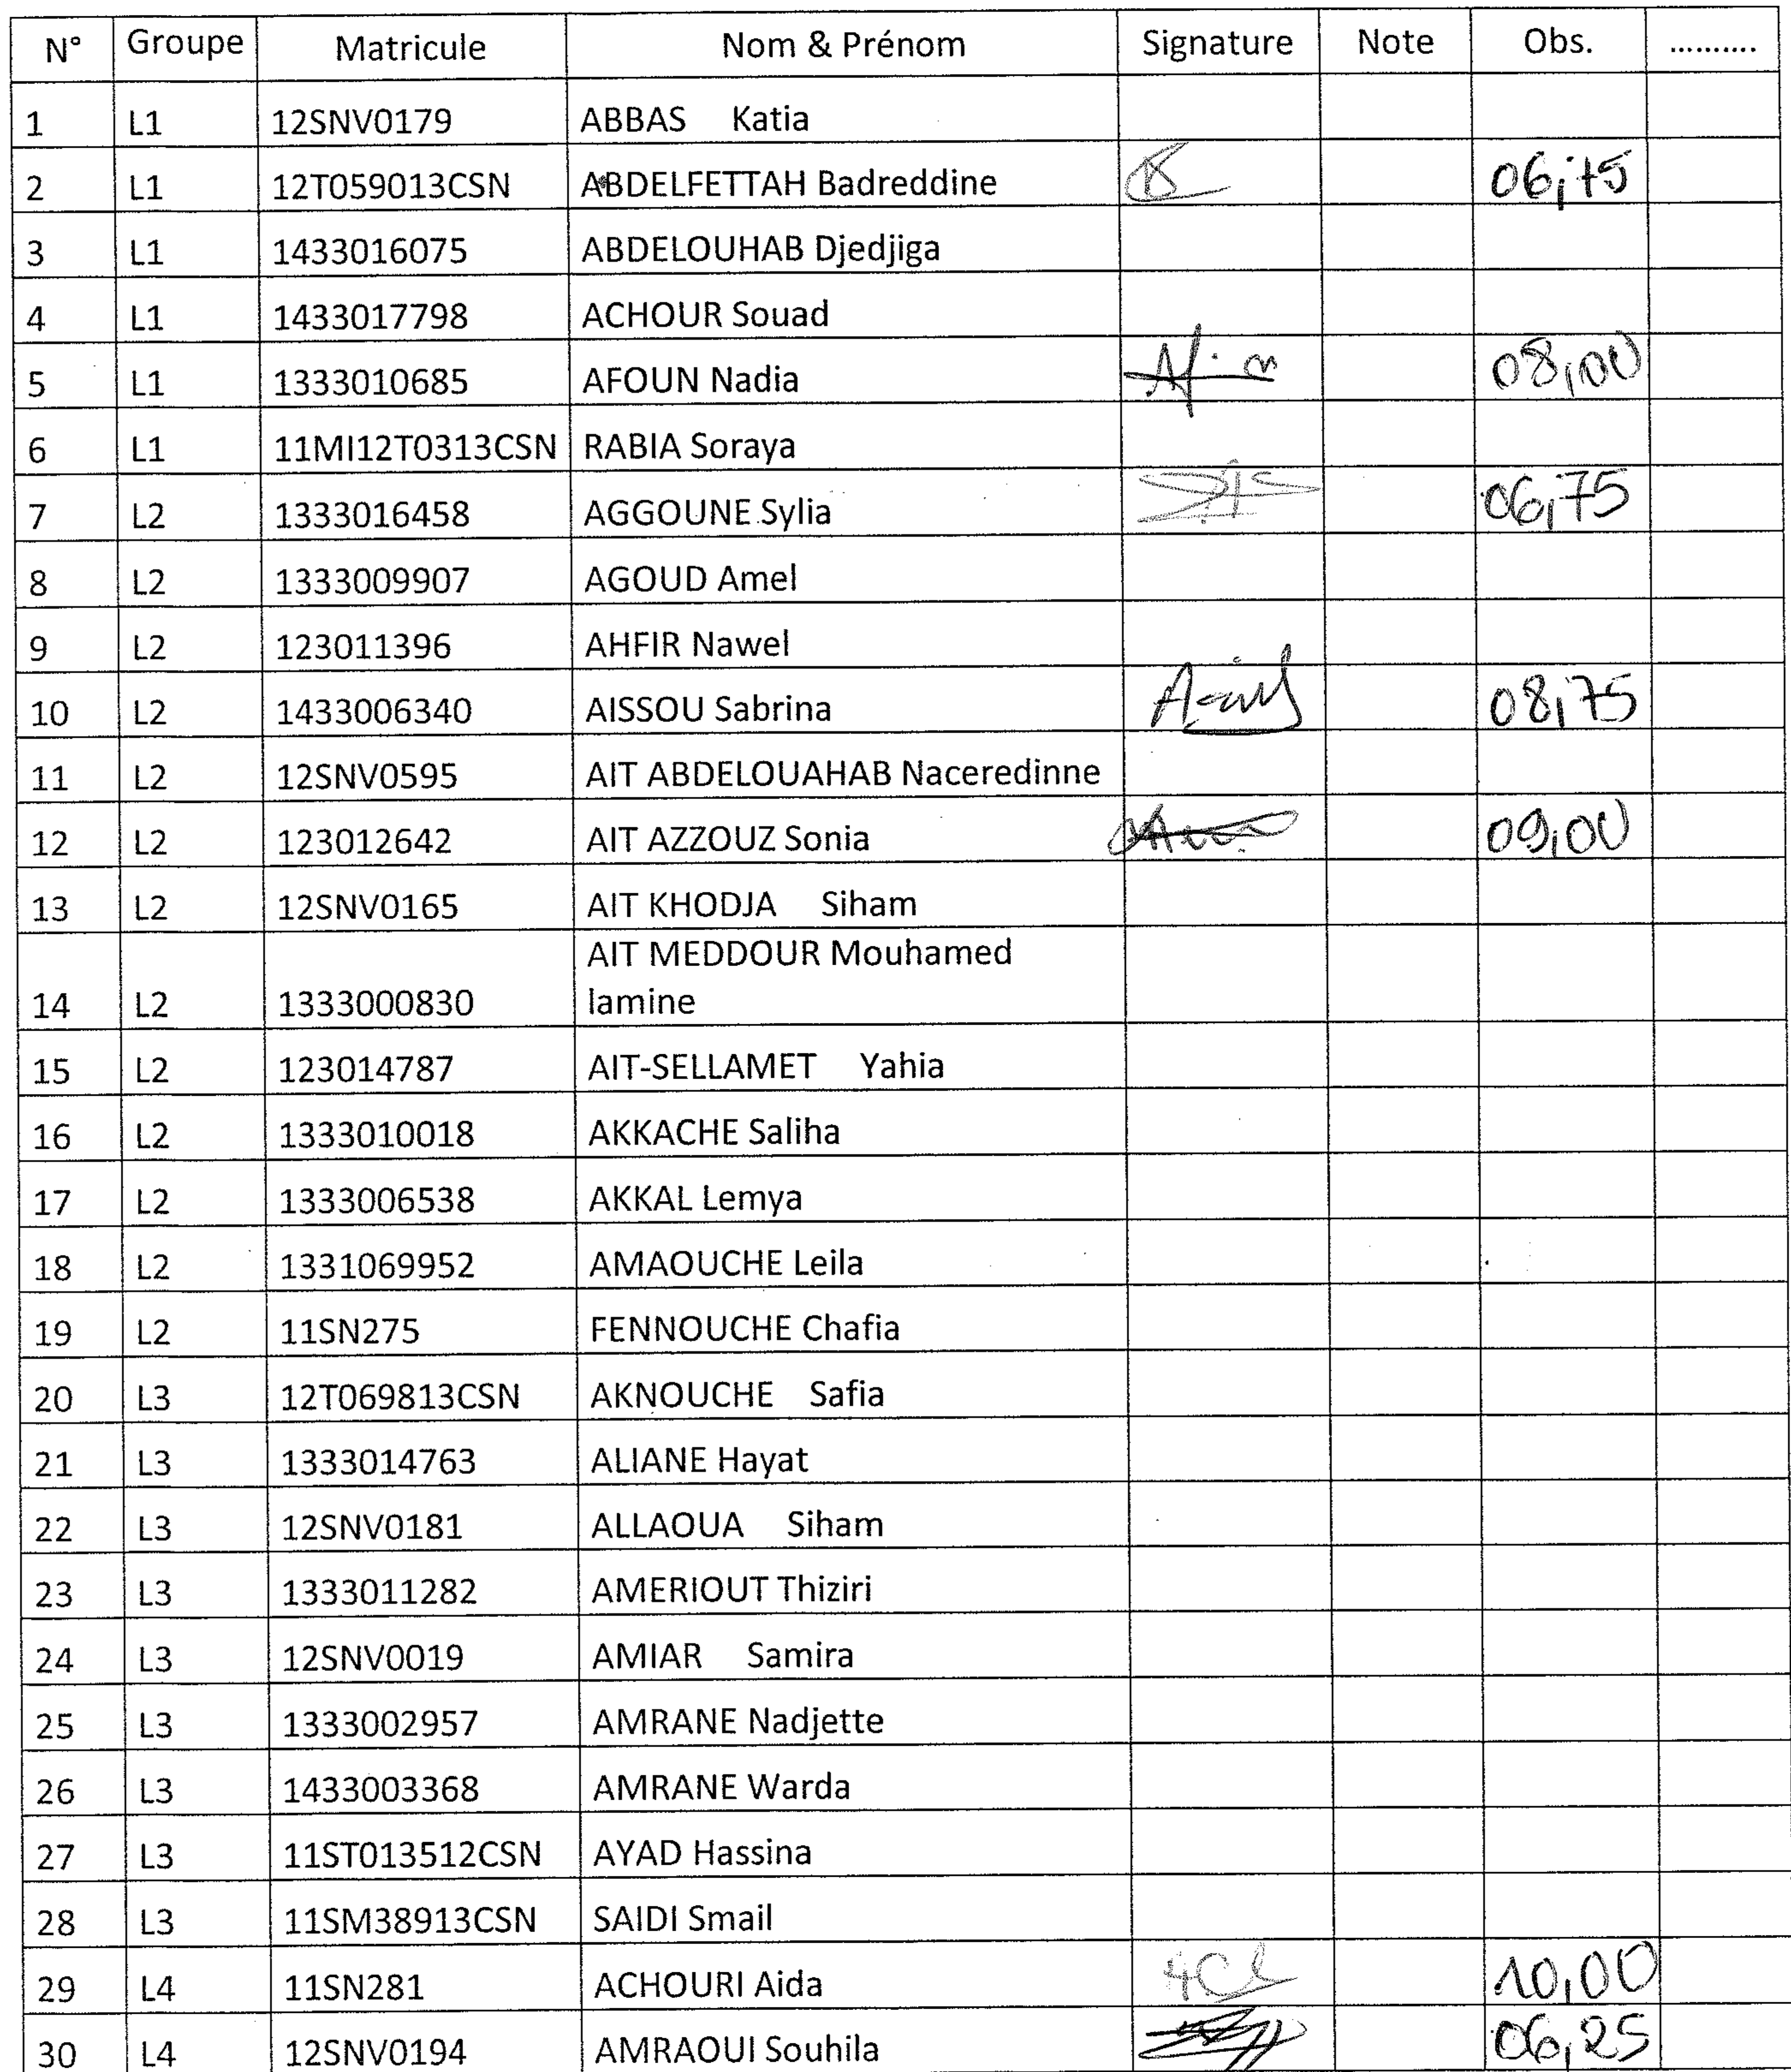 N° Groupe Matricule Nom & Prénom Signature Note Obs. ..........
1 L1 12SNV0179 ABBAS Katia
2 L1 12T059013CSN ABDELFETTAH Badreddine 06,75
3 L1 1433016075 ABDELOUHAB Djedjiga
4 L1 1433017798 ACHOUR Souad
5 L1 1333010685 AFOUN Nadia 08,00
6 L1 11MI12T0313CSN RABIA Soraya
7 L2 1333016458 AGGOUNE Sylia 06,75
8 L2 1333009907 AGOUD Amel
9 L2 123011396 AHFIR Nawel
10 L2 1433006340 AISSOU Sabrina 08,75
11 L2 12SNV0595 AIT ABDELOUAHAB Naceredinne
12 L2 123012642 AIT AZZOUZ Sonia 09,00
13 L2 12SNV0165 AIT KHODJA Siham
AIT MEDDOUR Mouhamed
14 L2 1333000830 lamine
15 L2 123014787 AIT-SELLAMET Yahia
16 L2 1333010018 AKKACHE Saliha
17 L2 1333006538 AKKAL Lemya
18 L2 1331069952 AMAOUCHE Leila
19 L2 11SN275 FENNOUCHE Chafia
20 L3 12T069813CSN AKNOUCHE Safia
21 L3 1333014763 ALIANE Hayat
22 L3 12SNV0181 ALLAOUA Siham
23 L3 1333011282 AMERIOUT Thiziri
24 L3 12SNV0019 AMIAR Samira
25 L3 1333002957 AMRANE Nadjette
26 L3 1433003368 AMRANE Warda
27 L3 11ST013512CSN AYAD Hassina
28 L3 11SM38913CSN SAIDI Smail
29 L4 11SN281 ACHOURI Aida 10,00
30 L4 12SNV0194 AMRAOUI Souhila 06,25